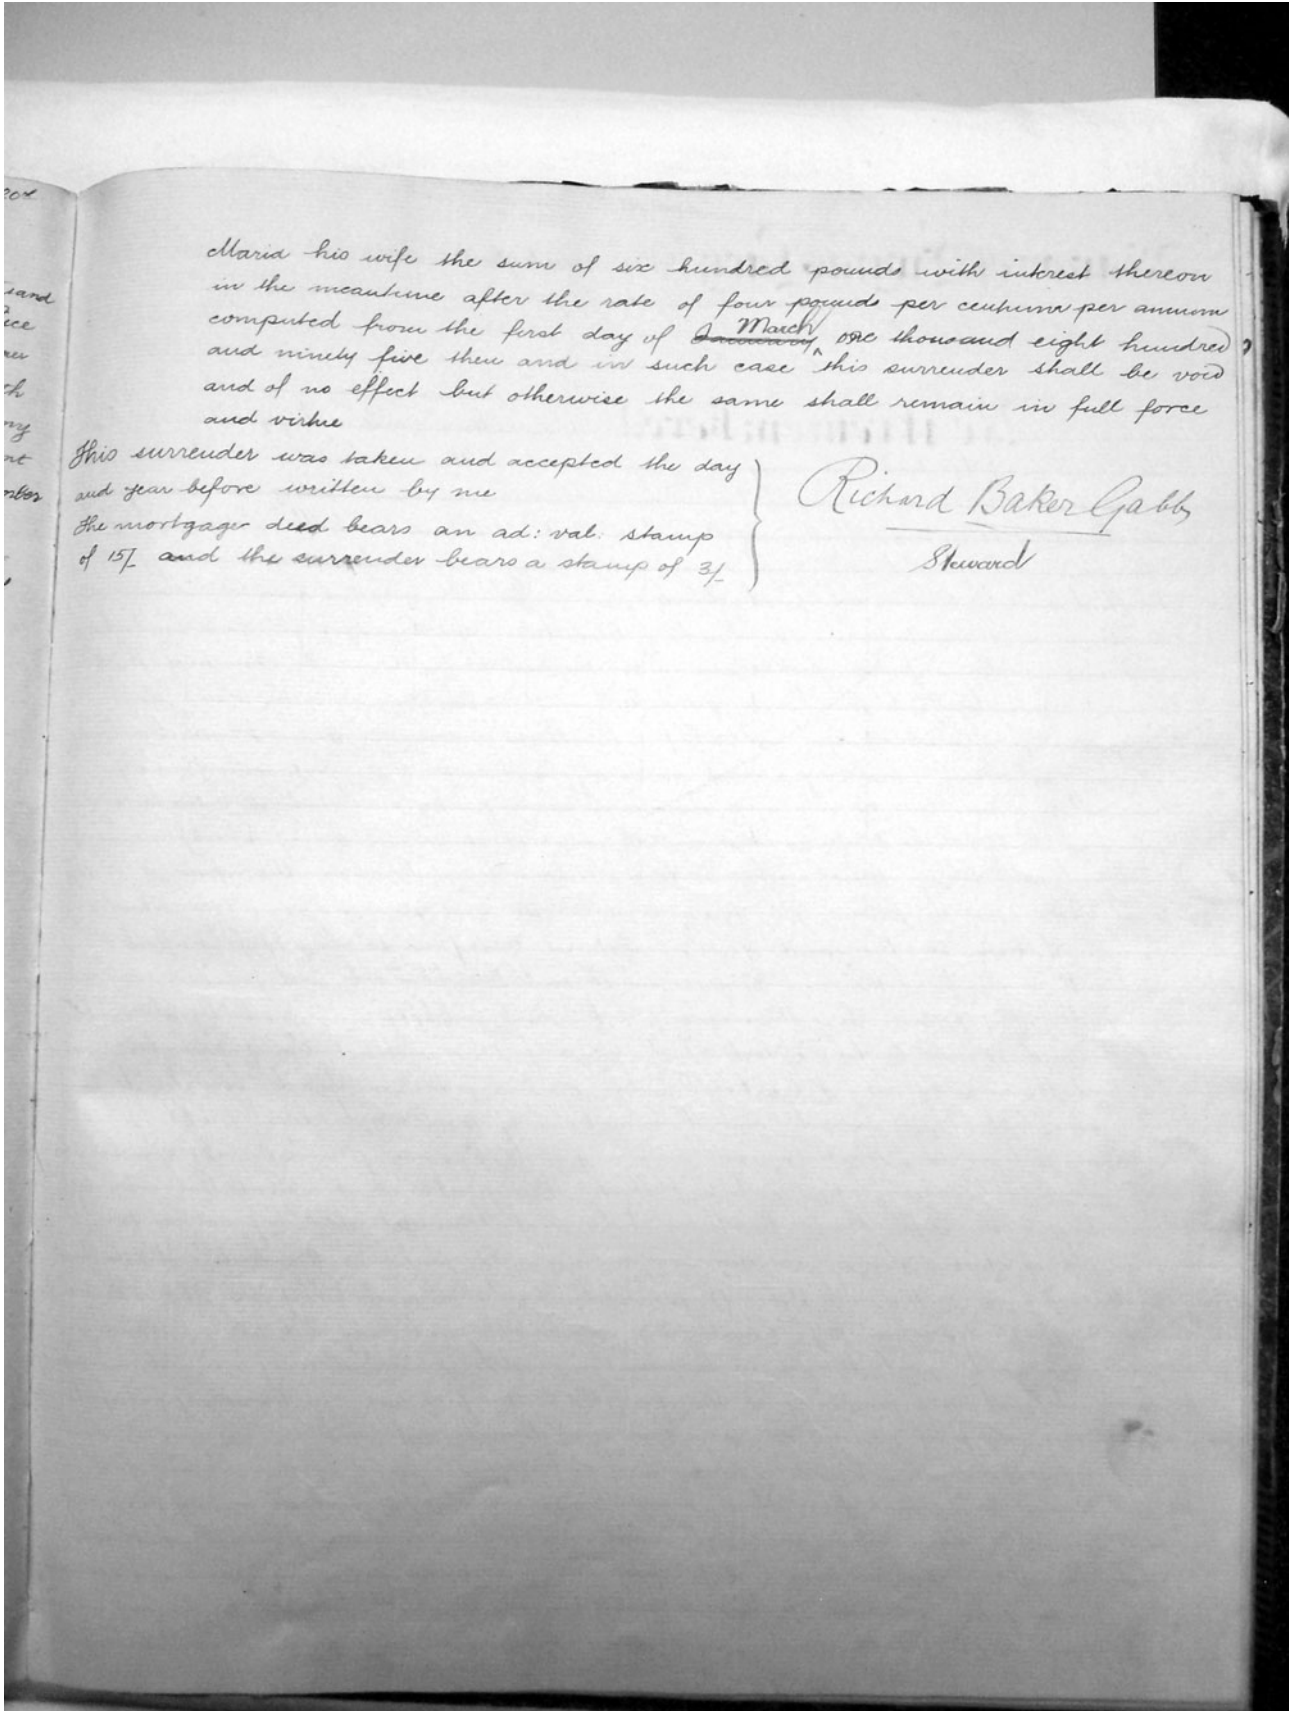 Maria his wife the sum of six hundred pounds with interest thereon
in the meantime after the rate of four pounds per centum per annum
computed from the first day of January March one thousand eight hundred
and ninety five then and in such case this surrender shall be void
and of no effect but otherwise the same shall remain in full force
and virtue
This surrender was taken and accepted the day
and year before written by me
The mortgage deed bears an ad: val: stamp
of 15/- and the surrender bears a stamp of 3/-
Richard Baker Gabb
Steward